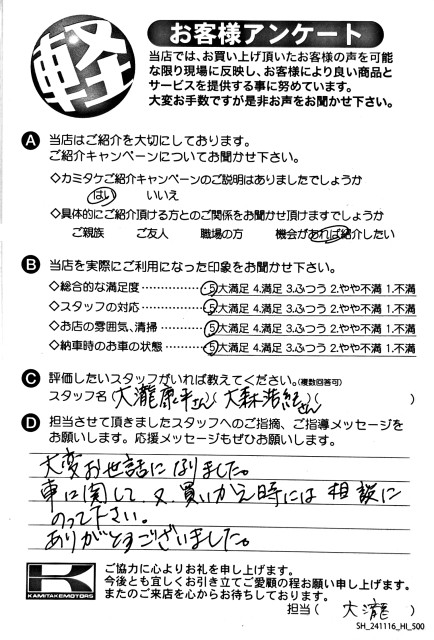 軽
お客様アンケート
当店では、お買い上げ頂いたお客様の声を可能
な限り現場に反映し、お客様により良い商品と
サービスを提供する事に努めています。
大変お手数ですが是非お声をお聞かせ下さい。
A 当店はご紹介を大切にしております。
ご紹介キャンペーンについてお聞かせ下さい。
◇カミタケご紹介キャンペーンのご説明はありましたでしょうか
はい いいえ
◇具体的にご紹介頂ける方とのご関係をお聞かせ頂けますでしょうか
ご親族 ご友人 職場の方 機会があれば紹介したい
B 当店を実際にご利用になった印象をお聞かせ下さい。
◇総合的な満足度………………5大満足 4.満足 3.ふつう 2.やや不満 1.不満
◇スタッフの対応………………5大満足 4.満足 3.ふつう 2.やや不満 1.不満
◇お店の雰囲気、清掃…………5大満足 4.満足 3.ふつう 2.やや不満 1.不満
◇納車時のお車の状態…………5大満足 4.満足 3.ふつう 2.やや不満 1.不満
C 評価したいスタッフがいれば教えてください。(複数回答可)
スタッフ名(大瀧康平さん)(大森浩紀さん)( )
D 担当させて頂きましたスタッフへのご指摘、ご指導メッセージを
お願いします。応援メッセージもぜひお願いします。
大変お世話になりました。
車に関して、又、買いかえ時には 相談に
のって下さい。
ありがとうございました。
K
KAMITAKEMOTORS
ご協力に心よりお礼を申し上げます。
今後とも宜しくお引き立てご愛顧の程お願い申し上げます。
またのご来店を心からお待ちしております。
担当( 大瀧 )
SH_241116_HI_500